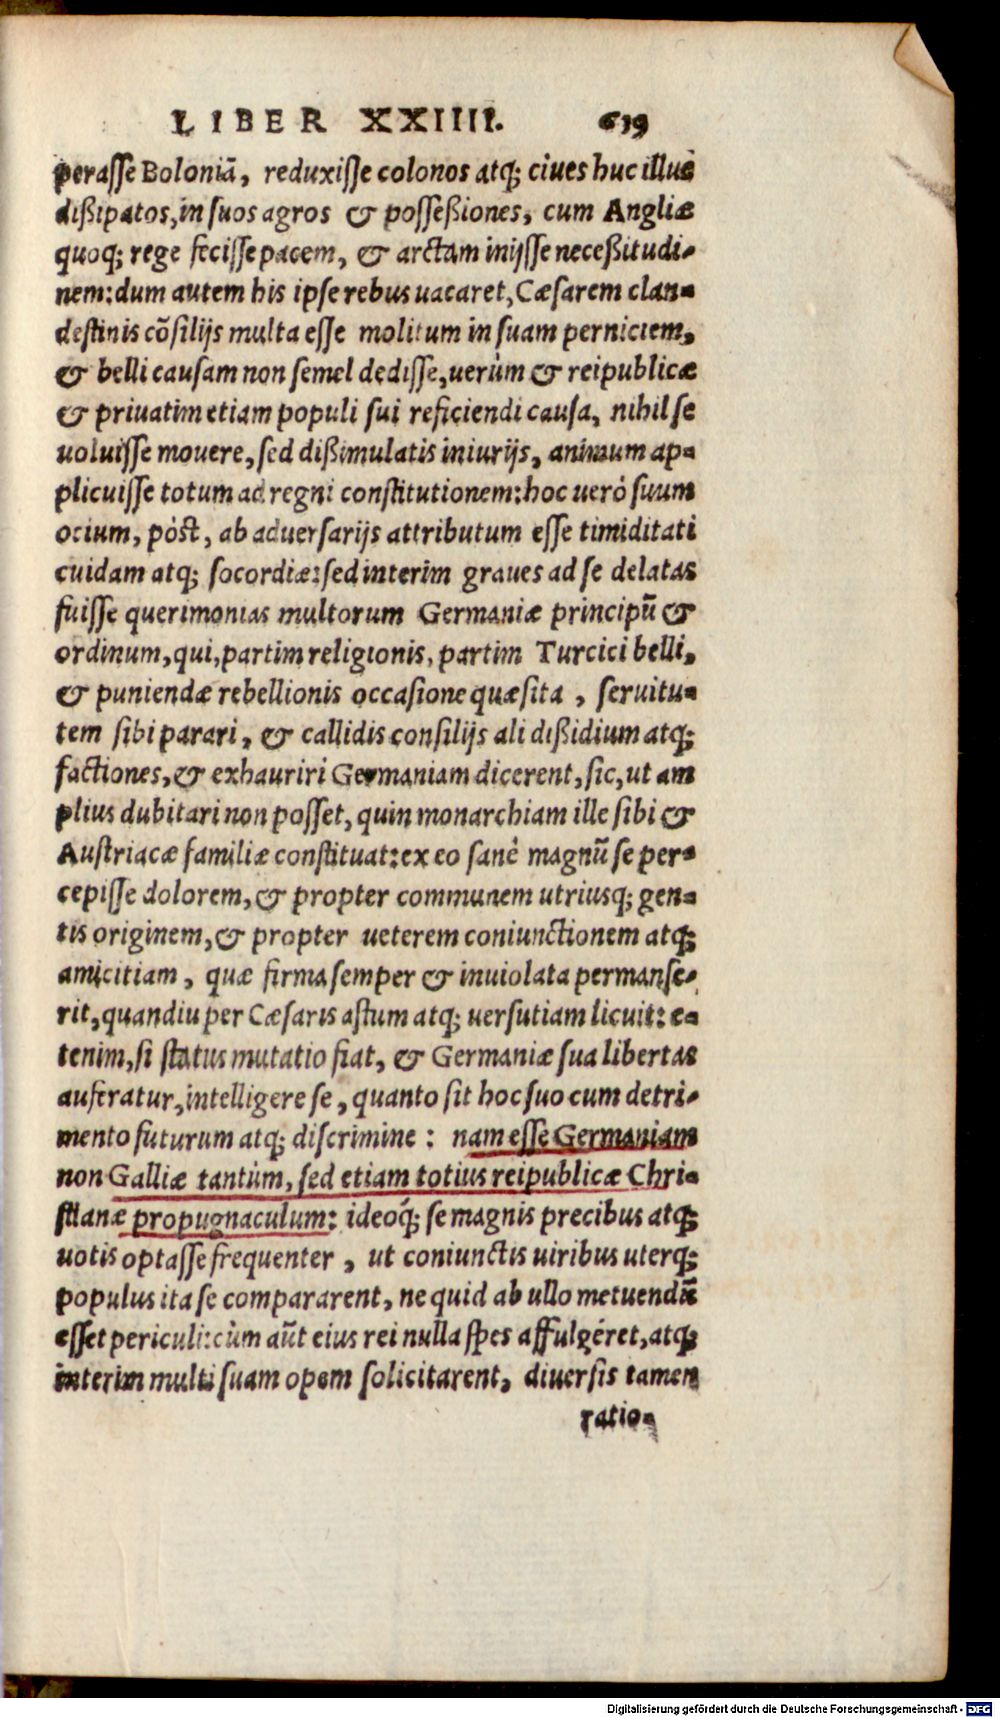 LIBER XXIIII. 639
perasse Boloniã, reduxisse colonos atq; ciues huc illuc
dißipatos, in suos agros & possessiones, cum Angliæ
quoq; rege fecisse pacem, & arctam inijsse neceßitudi-
nem: dum autem his ipse rebus uacaret, Cæsarem clan-
destinis cõsilijs multa esse molitum in suam perniciem,
& belli causam non semel dedisse, uerùm & reipublicæ
& priuatim etiam populi sui reficiendi causa, nihil se
uoluisse mouere, sed dißimulatis iniurijs, animum ap-
plicuisse totum ad regni constitutionem: hoc uerò suum
ocium, pòst, ab aduersarijs attributum esse timiditati
cuidam atq; socordiæ: sed interim graues ad se delatas
fuisse querimonias multorum Germaniæ principũ &
ordinum, qui, partim religionis, partim Turcici belli,
& puniendæ rebellionis occasione quæsita, seruitu-
tem sibi parari, & callidis consilijs ali dißidium atq;
factiones, & exhauriri Germaniam dicerent, sic, ut am
plius dubitari non posset, quin monarchiam ille sibi &
Austriacæ familiæ constituat: ex eo sanè magnũ se per-
cepisse dolorem, & propter communem utriusq; gen-
tis originem, & propter ueterem coniunctionem atq;
amicitiam, quæ firma semper & inuiolata permanse-
rit, quandiu per Cæsaris astum atq; uersutiam licuit: e-
tenim, si status mutatio fiat, & Germaniæ sua libertas
auferatur, intelligere se, quanto sit hoc suo cum detri-
mento futurum atq; discrimine: nam esse Germaniam
non Galliæ tantùm, sed etiam totius reipublicæ Chri-
stianæ propugnaculum: ideoq́; se magnis precibus atq;
uotis optasse frequenter, ut coniunctis uiribus uterq;
populus ita se compararent, ne quid ab ullo metuendũ
esset periculi: cùm aũt eius rei nulla spes affulgéret, atq;
interim multi suam opem solicitarent, diuersis tamen
ratio-
Digitalisierung gefördert durch die Deutsche Forschungsgemeinschaft - DFG